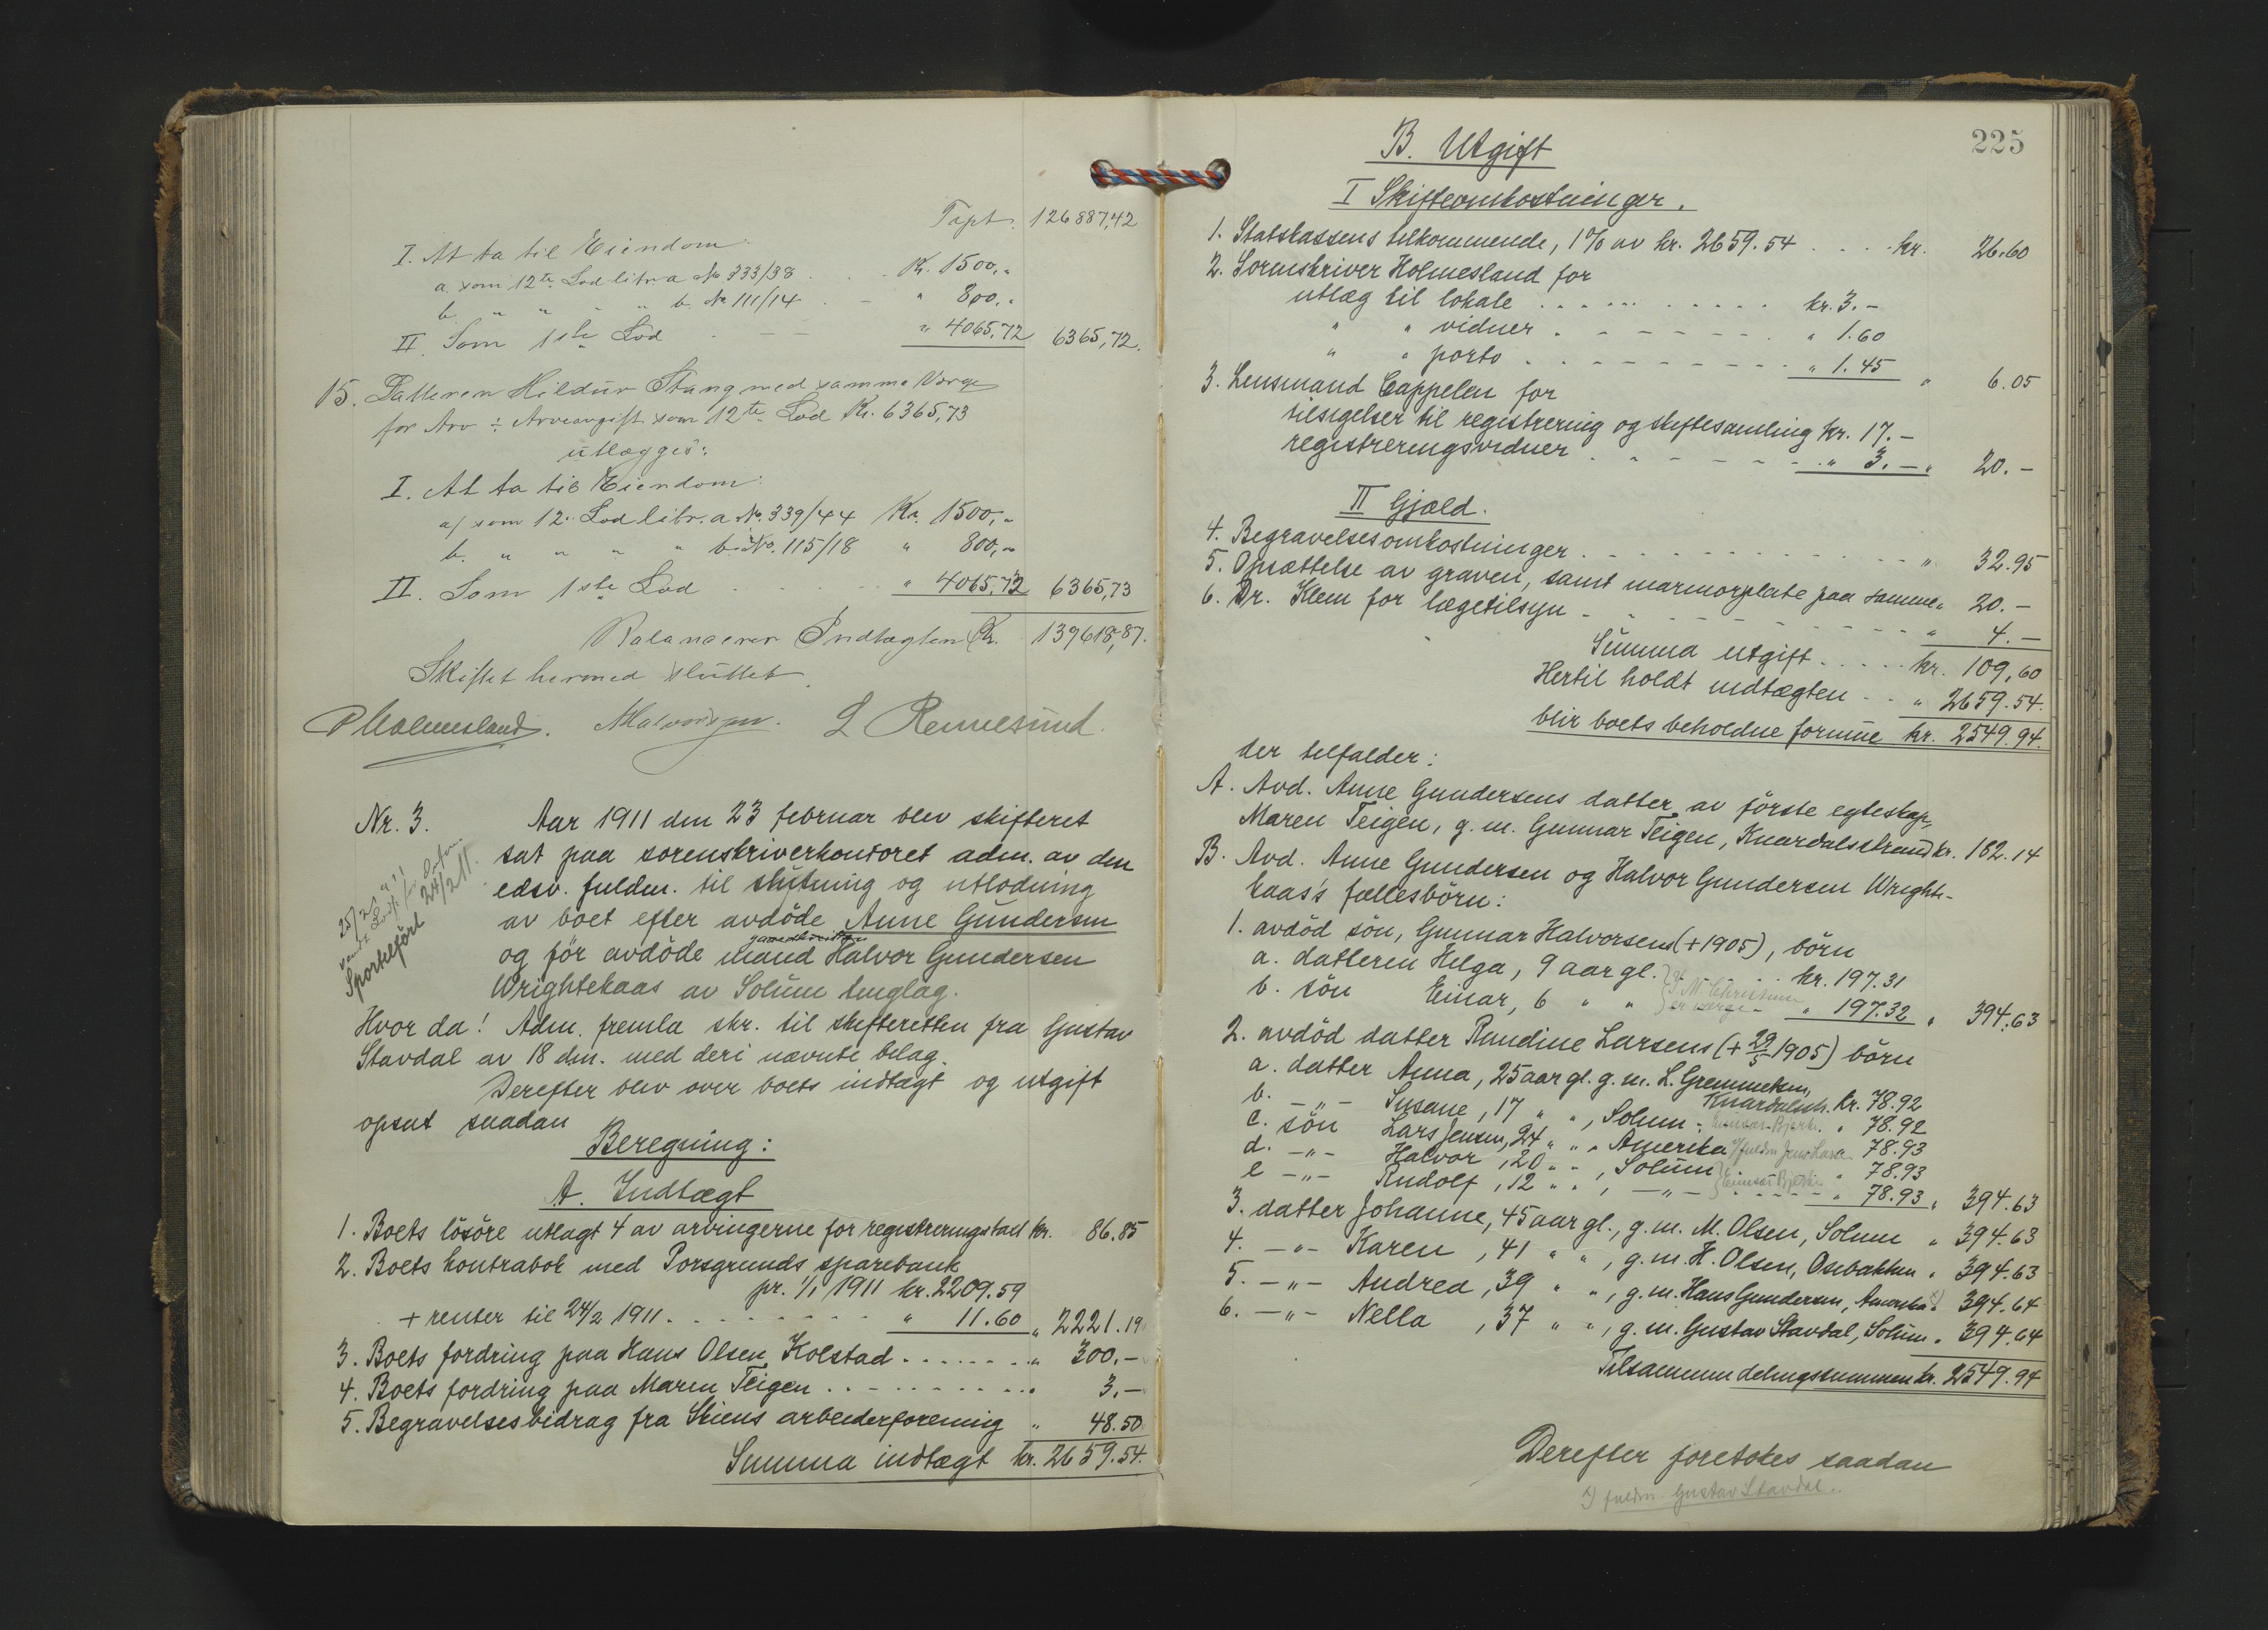 Tspt. 126887,42
I. At ta til Eiendom:
a. som 12te Lod litra a No 333/38 . . . Kr. 1500,"
b. " " " " b. No 111/14 . - " 800,"
II. Som 1ste Lod - - " 4065,72 6365,72.
15. Datteren Hildur Stang med samme Verge
for Arv ÷ Arveavgift som 12te Lod Kr. 6365,73
utlægges:
I. At ta til Eiendom:
a/ som 12. Lod litr. a No. 339/44 Kr. 1500,"
b. " " " " b. No. 115/18 " 800,"
II. Som 1ste Lod . . . . " 4065,73 6365,73
Balancerer Indtægten Kr. 139618,87.
Skiftet hermed sluttet.
Holmesland. Halvorsen. L Rennesund.
Nr. 3. Aar 1911 den 23 februar blev skifteret
sat paa sorenskriverkontoret adm. av den
edsv. fuldm. til slutning og utlodning
av boet efter avdöde Anne Gundersen
og för avdöde mand Halvor Gundersen
Wrightekaas av Solum tinglag.
25/2
Sportelført 24/2 11.
Hvor da! Adm. fremla skr. til skifteretten fra Gustav
Stavdal av 18 dm. med deri nævnte bilag.
Derefter blev over boets indtægt og utgift
opsat saadan
Beregning:
A. Indtægt
1. Boets lösöre utlagt 4 av arvingerne for registreringstakst kr. 86.85
2. Boets kontrabok med Porsgrunds sparebank
pr. 1/1 1911 kr. 2209.59
+ renter til 24/2 1911 . . . . . " 11.60 " 2221.19
3. Boets fordring paa Hans Olsen Kolstad . . . . . . . " 300.-
4. Boets fordring paa Maren Teigen . . . . . . . . . " 3.-
5. Begravelsesbidrag fra Skiens arbeiderforening " 48.50
Summa indtægt kr. 2659.54.
225
B. Utgift
I Skifteomkostninger.
1. Statskassens tilkommende, 1% av kr. 2659.54 . . . . kr. 26.60
2. Sorenskriver Holmesland for
utlæg til lokale . . . . . . . . . . kr. 3.-
" " vidner . - - - - - - . " 1.60
" " porto . . - - - - - - - . " 1.45 " 6.05
3. Lensmand Cappelen for
tilsigelser til registrering og skiftesamling kr. 17.-
registreringsvidner . - - - - - - . " 3.- " 20.-
II Gjæld.
4. Begravelsesomkostninger . - - - - - - - - - " 32.95
5. Opsættelse av graven, samt marmorplate paa samme " 20.-
6. Dr. Klem for lægetilsyn - - - - - - - - - " 4.-
Summa utgift . . . . . kr. 109,60
Hertil holdt indtægten - . . " 2659.54.
blir boets beholdne formue kr. 2549.94.
der tilfalder:
A. Avd. Anne Gundersens datter av förste egteskap,
Maren Teigen, g. m. Gunnar Teigen, Knardalsstrand kr. 182.14
B. Avd. Anne Gundersen og Halvor Gundersen Wrighte-
kaas's fællesbörn:
1. avdöd sön, Gunnar Halvorsens (+1905), börn
a. datteren Helga, 9 aar gl. . . . . kr. 197.31
b. sön Einar, 6 " " Christensen er verge " 197.32 " 394.63
2. avdöd datter Randine Larsens (+ 29/5 1905) börn
a. datter Anna, 25 aar gl. g. m. L. Gremmetsen,
Knardalsstr. kr. 78.92
b. -"- Susane, 17 " " , Solum - " 78.92
c. sön Lars Jensen, 24 " " , Amerika " 78.93
d. -"- Halvor, 20 " " , Solum " 78.93
e -"- Rudolf, 12 " " , -"- - - - - - " 78.93 " 394.63
3. datter Johanne, 45 aar gl., g. m. M. Olsen, Solum " 394.63
4. -"- Karen, 41 " " , g. m. H. Olsen, Osebakken " 394.63
5. -"- Andrea, 39 " " , g. m. Hans Gundersen, Amerika x) " 394.64
6. -"- Nella, 37 " " , g. m. Gustav Stavdal, Solum " 394.64
Tilsammen delingssummen kr. 2549.94
Derefter foretokes saadan
x) fuldm. Gustav Stavdal.